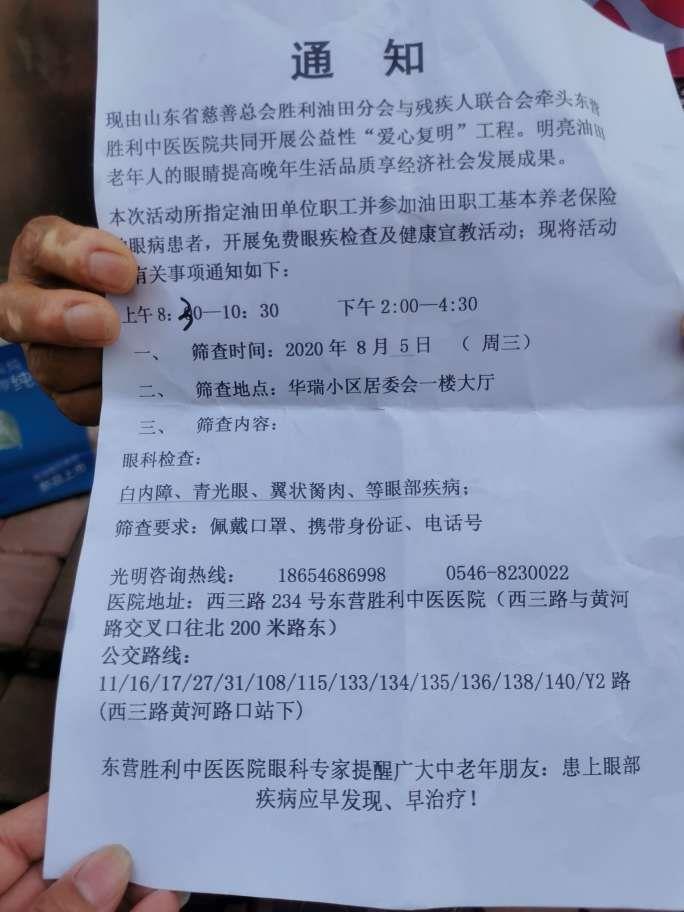 通 知
现由山东省慈善总会胜利油田分会与残疾人联合会牵头东营
胜利中医医院共同开展公益性“爱心复明”工程。明亮油田
老年人的眼睛提高晚年生活品质享经济社会发展成果。
本次活动所指定油田单位职工并参加油田职工基本养老保险
眼病患者，开展免费眼疾检查及健康宣教活动；现将活动
有关事项通知如下：
上午8：30—10：30 下午2:00—4:30
一、 筛查时间：2020年8月5日 （周三）
二、 筛查地点：华瑞小区居委会一楼大厅
三、 筛查内容：
眼科检查：
白内障、青光眼、翼状胬肉、等眼部疾病；
筛查要求：佩戴口罩、携带身份证、电话号
光明咨询热线： 18654686998 0546-8230022
医院地址：西三路234号东营胜利中医医院（西三路与黄河
路交叉口往北200米路东）
公交路线：
11/16/17/27/31/108/115/133/134/135/136/138/140/Y2路
(西三路黄河路口站下)
东营胜利中医医院眼科专家提醒广大中老年朋友：患上眼部
疾病应早发现、早治疗！